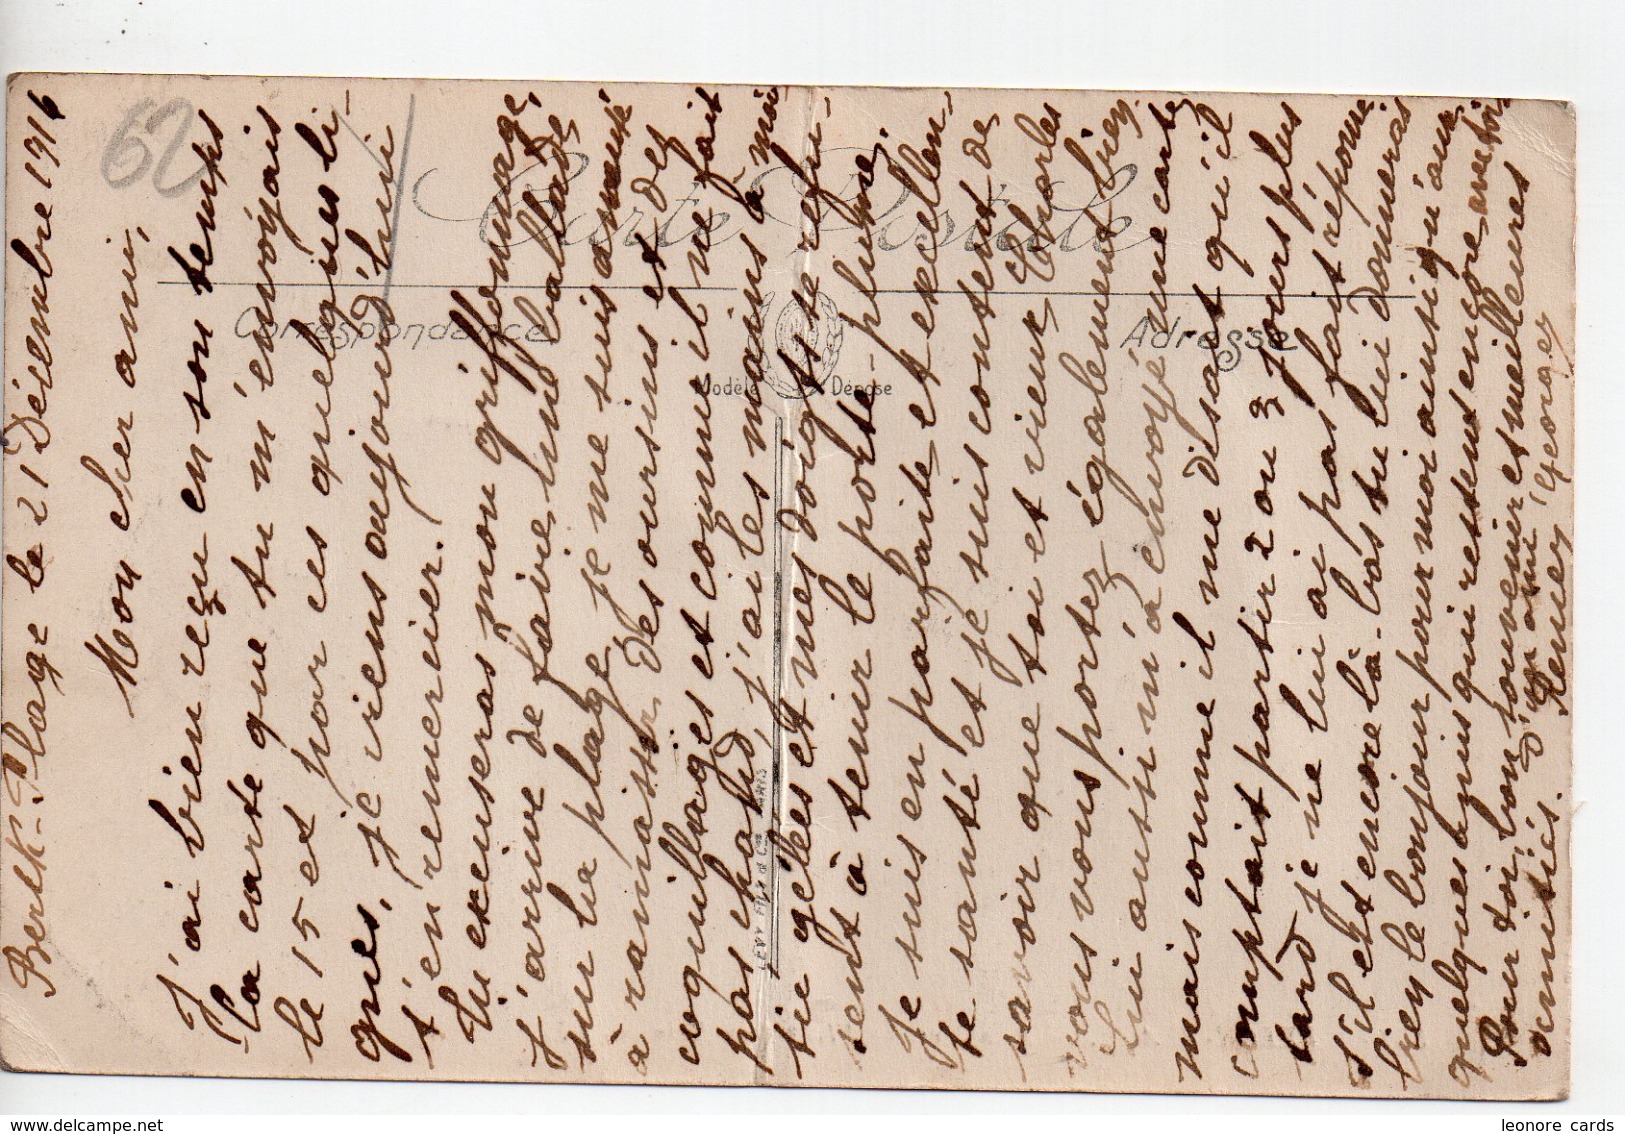 Berck-Plage le 21 Décembre 1916
Mon cher ami,
J'ai bien reçu en son temps
la carte que tu m'envoyais
le 15 et par ces quelques li-
gnes, je viens aujourd'hui
t'en remercier.
Tu excuseras mon griffonnage
J'arrive de faire une ballade
sur la plage je me suis amusé
à ramasser des oursins et des
coquillages et comme il ne fait
pas chaud, j'ai les mains à moi-
tié gelées et mes doigts refu-
sent à tenir le porte-plume
Je suis en parfaite et excellen-
te santé et je suis content de
savoir que toi et vieux Charles
vous vous portez également bien
Lui aussi m'a envoyé une carte
mais comme il me disait qu'il
comptait partir 2 ou 3 jours plus
tard je ne lui ai pas fait réponse
S'il est encore là-bas tu lui donneras
bien le bonjour pour moi ainsi qu'aux
quelques amis qui restent encore
Pour toi, bon souvenir et meilleures
amitiés. D'un ami
Georges
62
Carte Postale
Correspondance
Adresse
Modèle Déposé
LÉVY FILS & Cie PARIS
leonore cards
delcampe.net